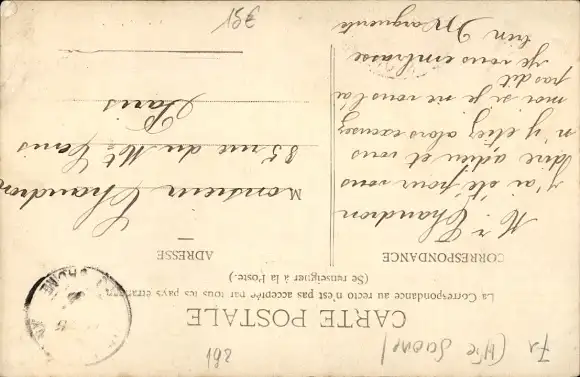 CARTE POSTALE
La Correspondance au recto n'est pas acceptée par tous les pays étrangers
(Se renseigner à la Poste.)
CORRESPONDANCE
Mr Chaudron
j'ai été pour vous
dire adieu et vous
n'y étiez alors excusez
moi si je ne vous l'ai
pas dit
je vous embrasse
bien Marguerite
ADRESSE
Monsieur Chaudron
85 rue du Mt Cenis
Paris
15€
192
(Hte Saone)